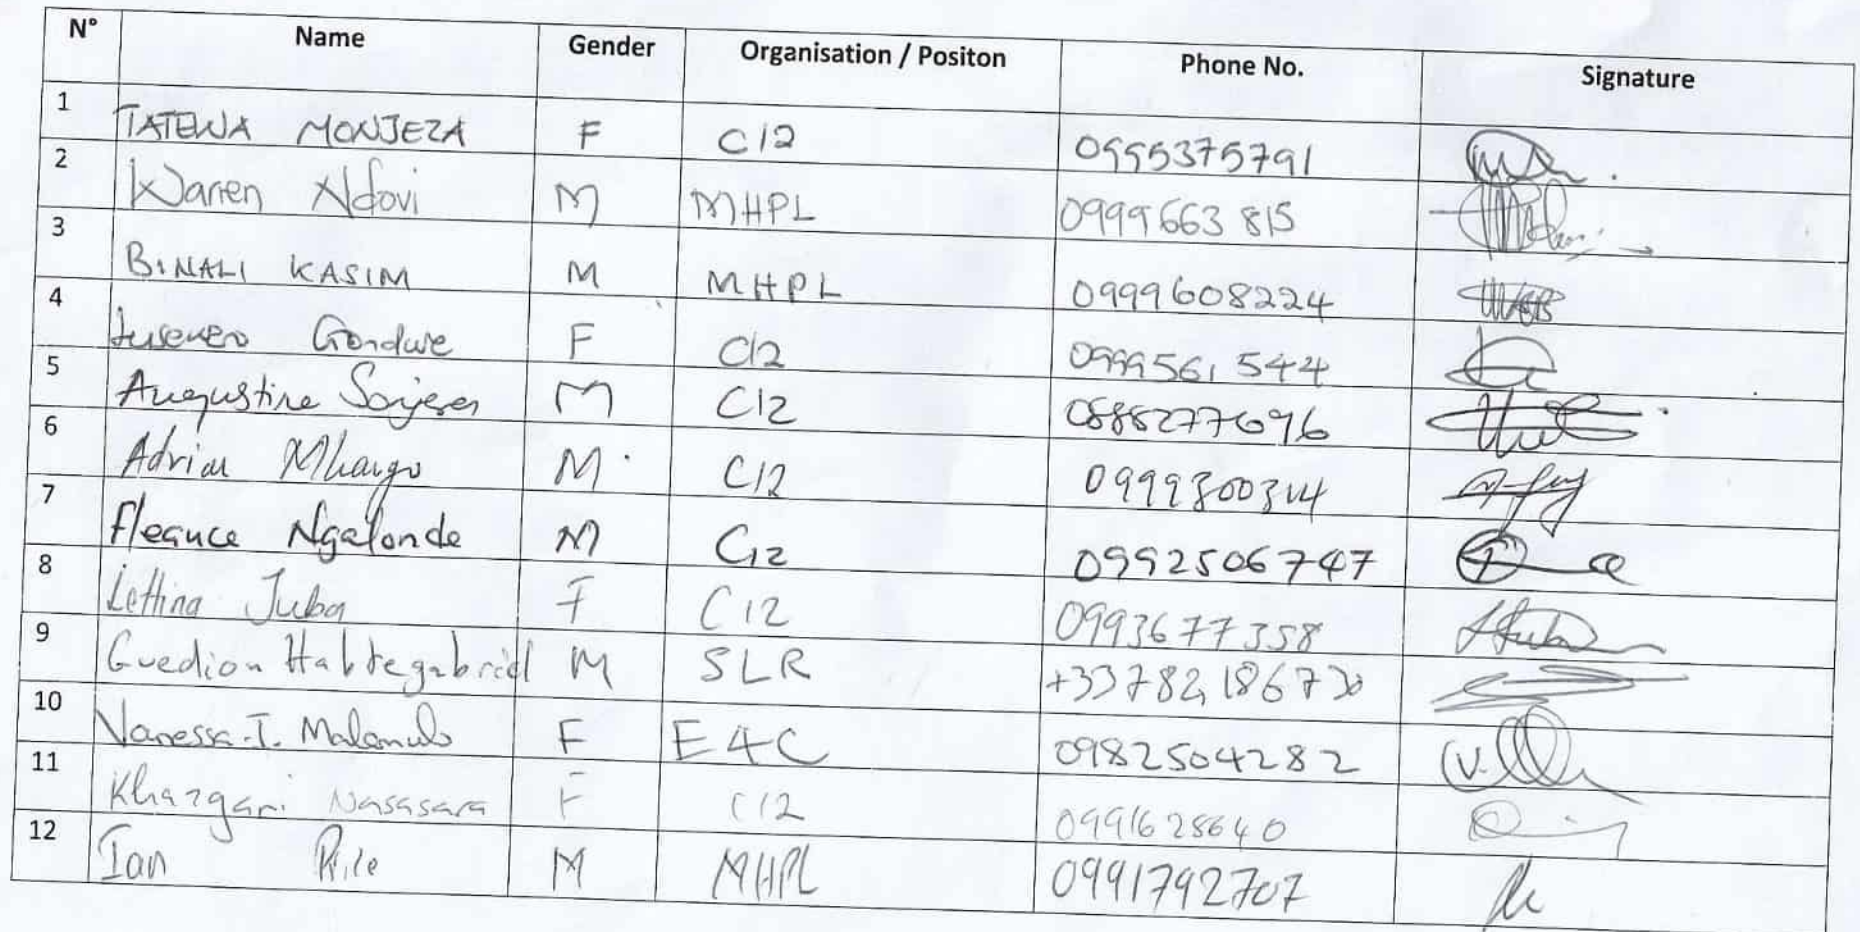 N° Name Gender Organisation / Positon Phone No. Signature
1 TATEWA MONJEZA F C12 0995375791
2 Warren Ndovi M MHPL 0999663 815
3 BINALI KASIM M MHPL 0999608224
4 Gondwe F C12 0999561 544
5 Augustine M C12 0888277696
6 Adrian Mhango M C12
7 Fleance Ngalonde M C12 0992506747
8 Lettina Juba F C12 0993677358
9 Guedion Habtegabriel M SLR
10 Vanessa.T. Malamulo F E4C 0982504282
11 Nasasara F C12 0991628640
12 Ian M MHPL 0991792707